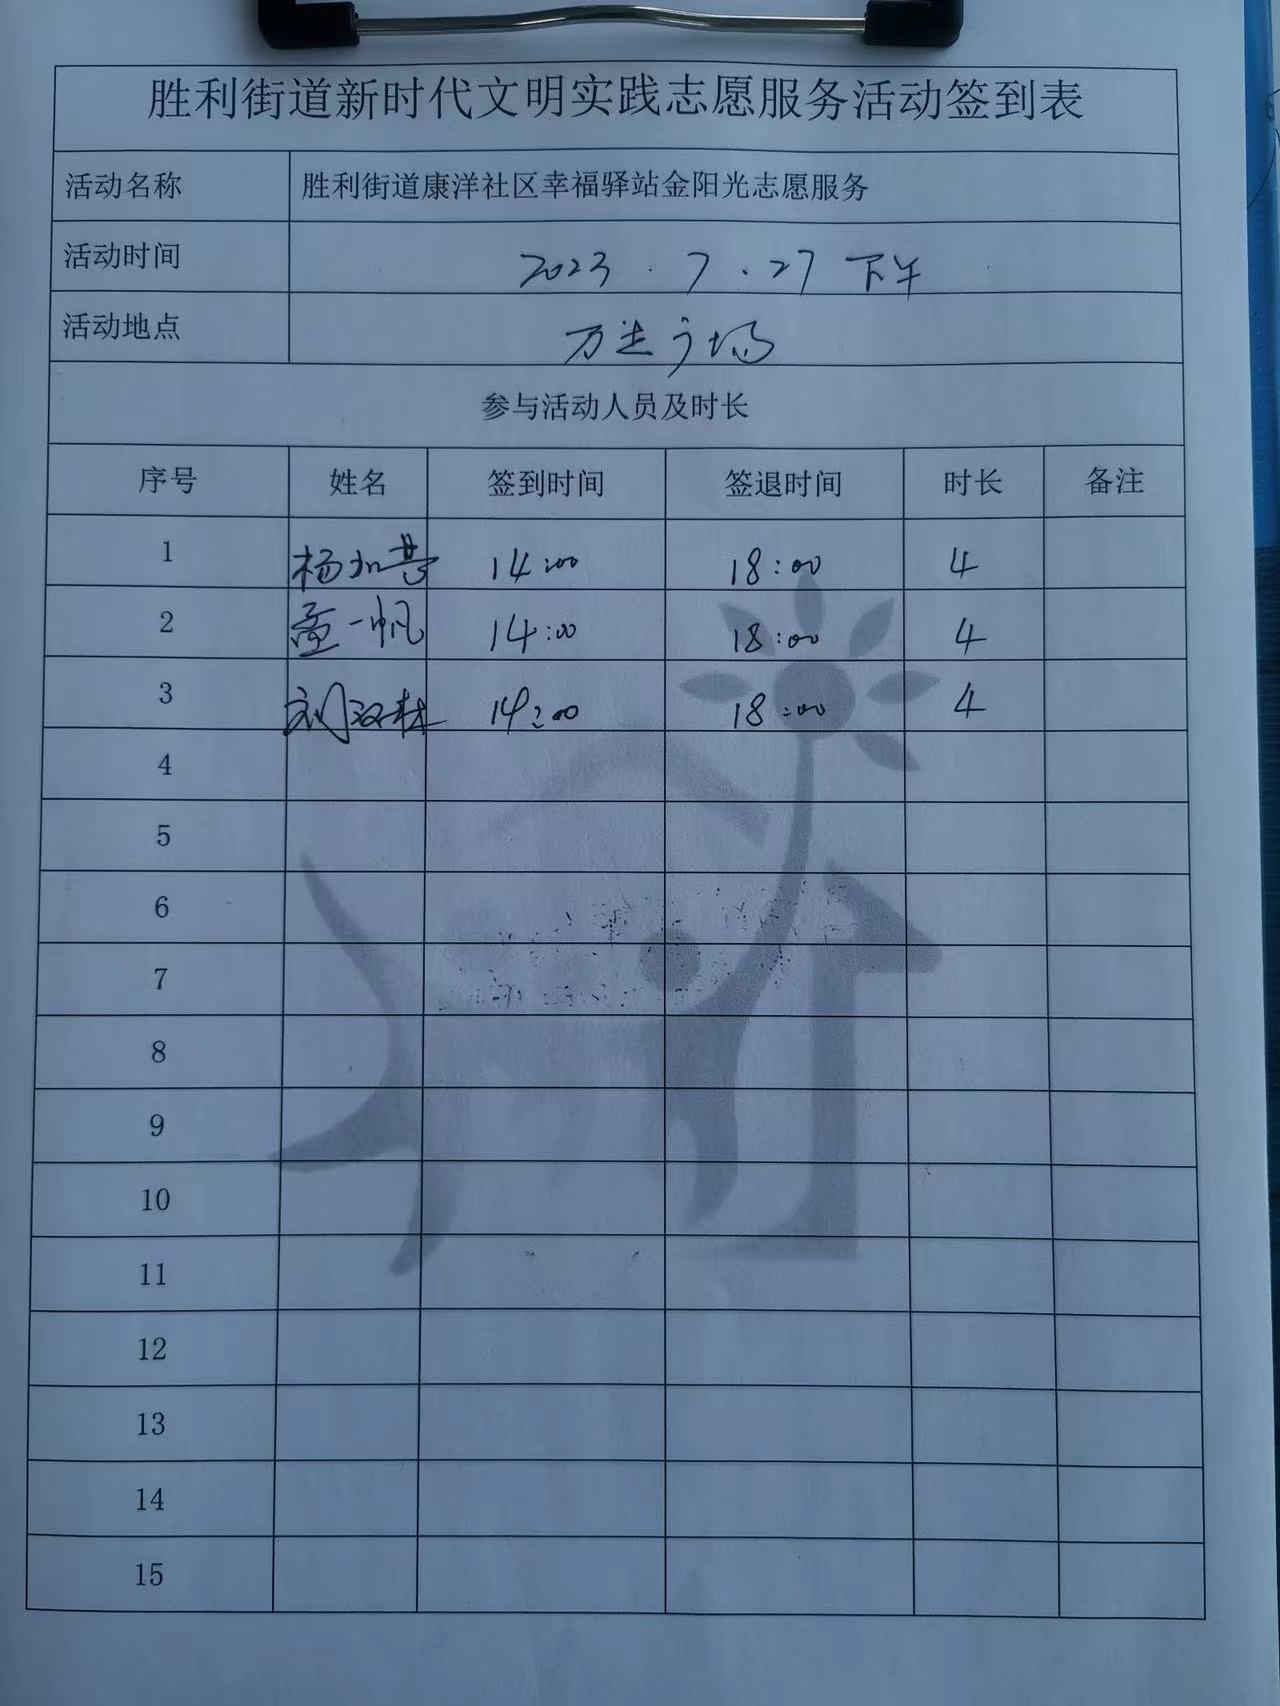 胜利街道新时代文明实践志愿服务活动签到表
活动名称 胜利街道康洋社区幸福驿站金阳光志愿服务
活动时间 2023.7.27 下午
活动地点 万达广场
参与活动人员及时长
序号 姓名 签到时间 签退时间 时长 备注
1 杨 14:00 18:00 4
2 孟一帆 14:00 18:00 4
3 刘 14:00 18:00 4
4
5
6
7
8
9
10
11
12
13
14
15